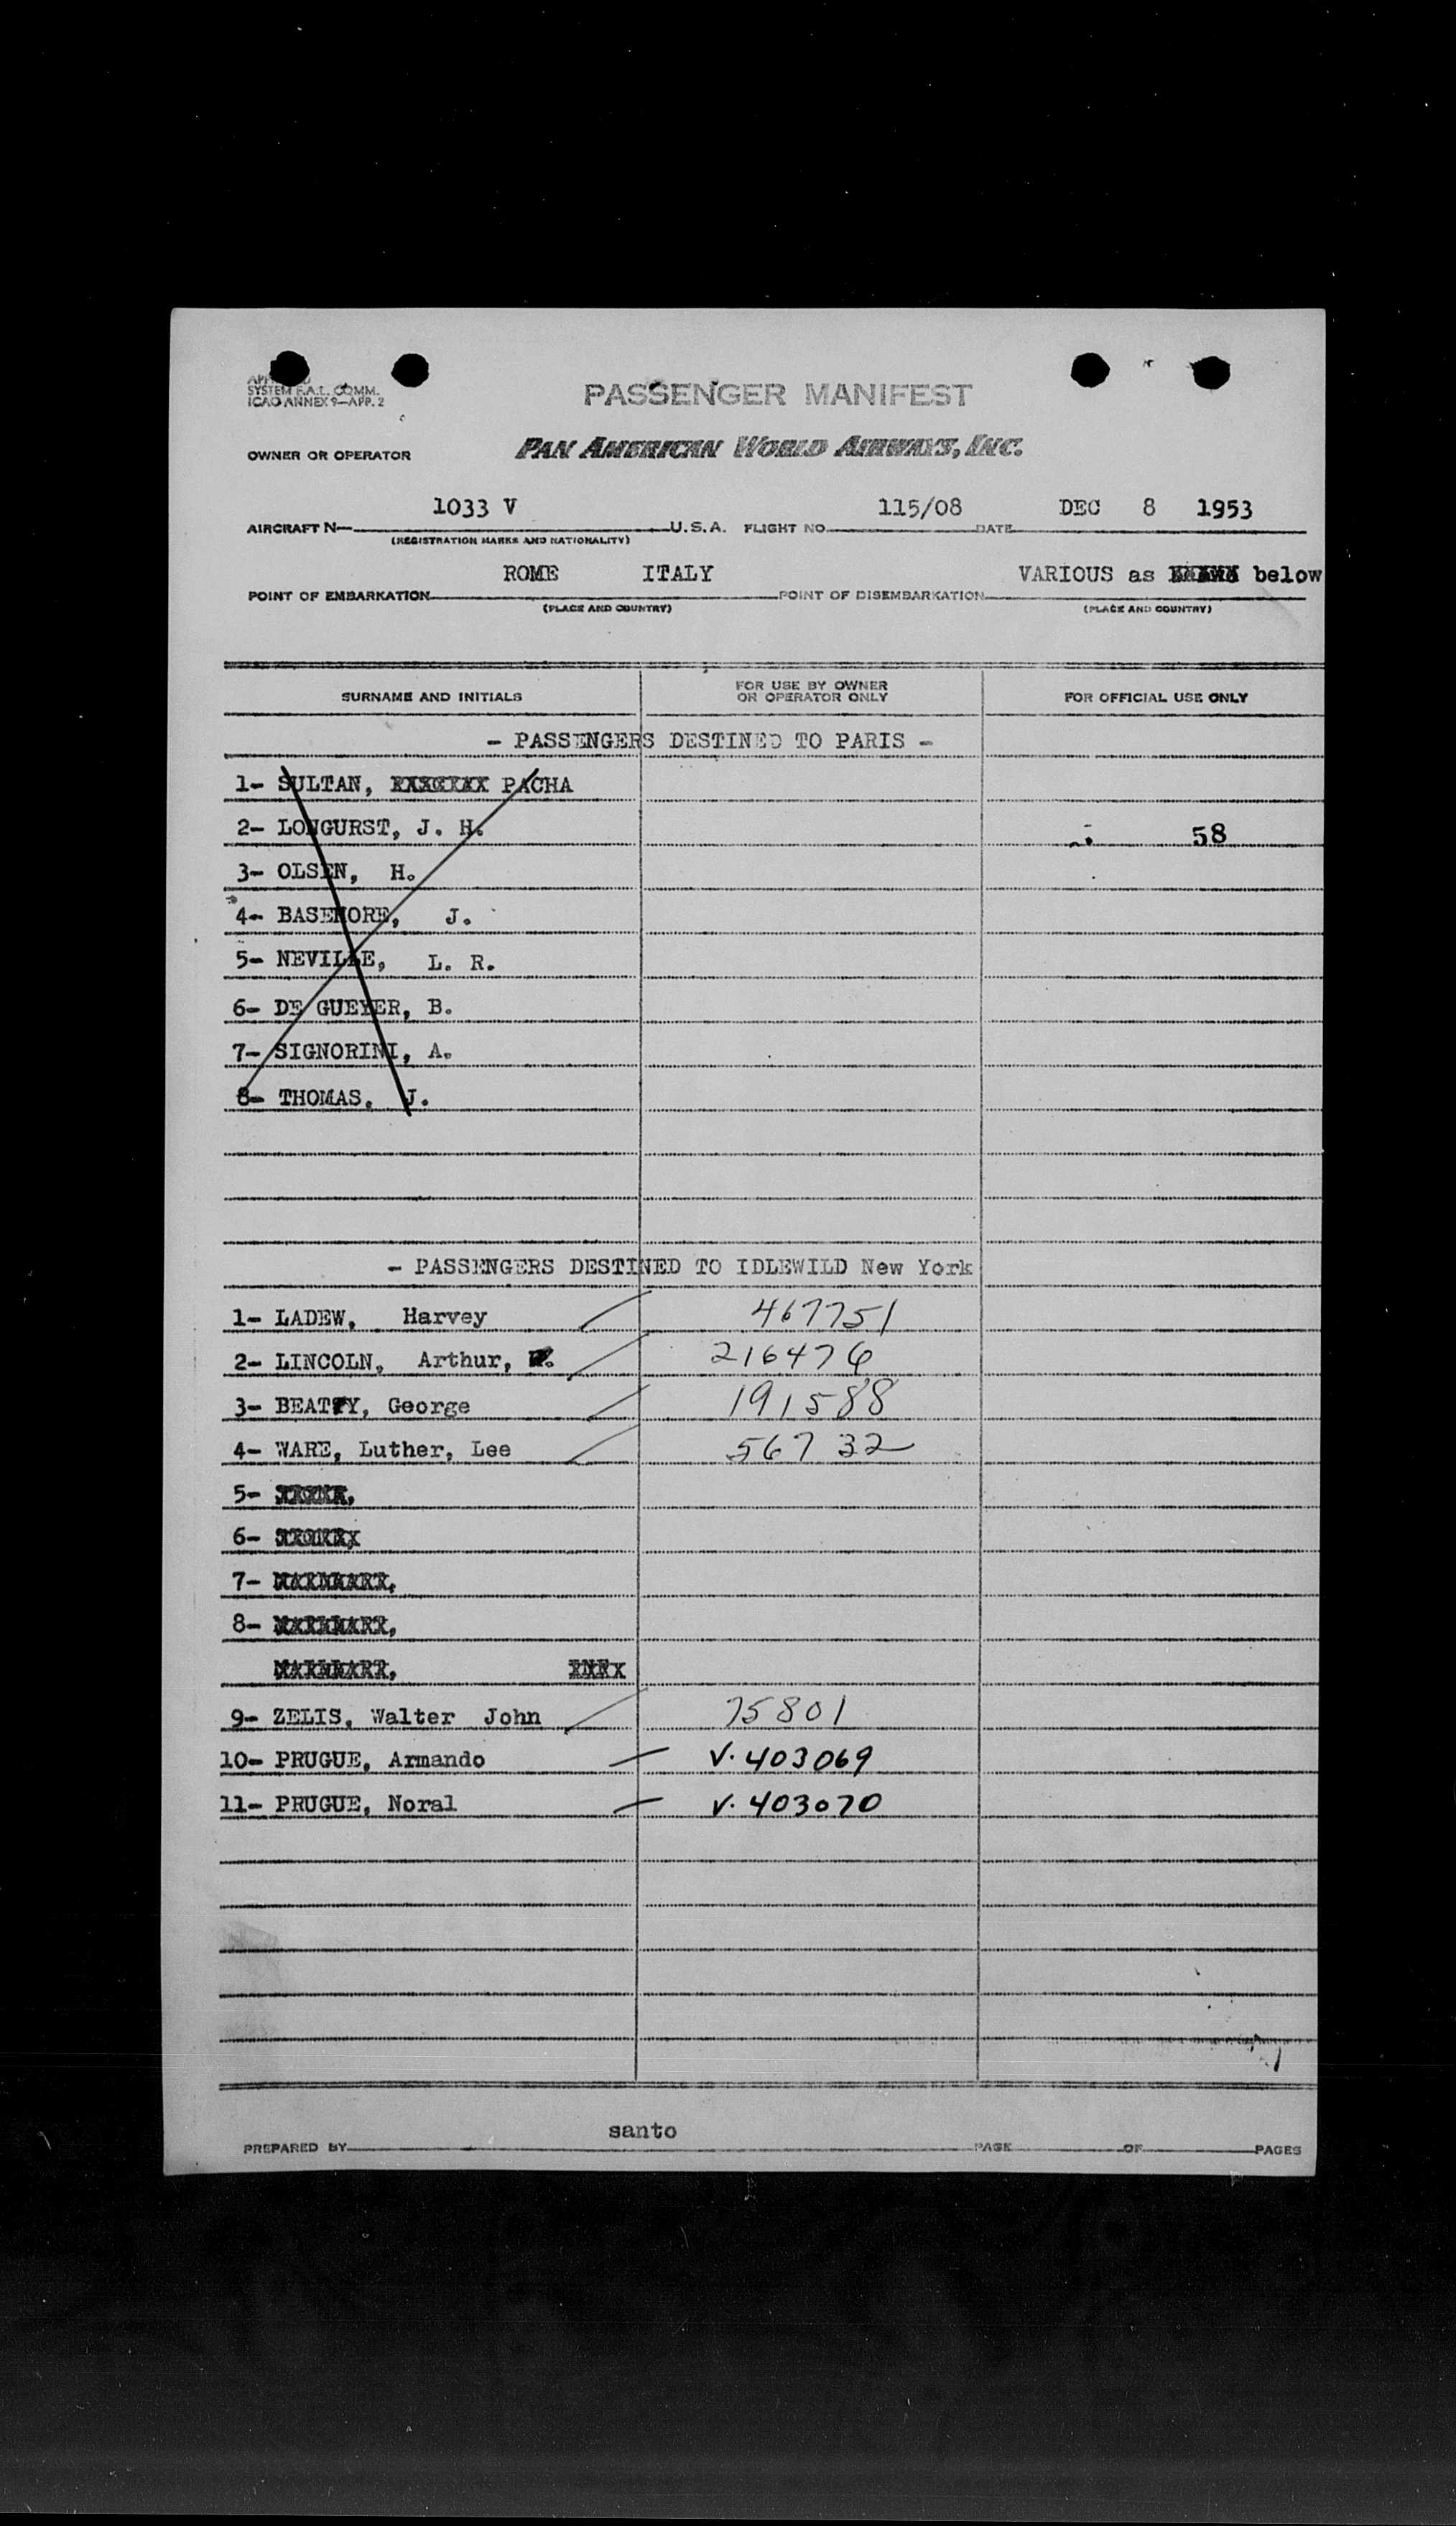 SYSTEM F.A.L. COMM.
ICAO ANNEX 9—APP. 2
PASSENGER MANIFEST
OWNER OR OPERATOR
PAN AMERICAN WORLD AIRWAYS, INC.
AIRCRAFT N— 1033 V U.S.A. FLIGHT NO. 115/08 DATE DEC 8 1953
(REGISTRATION MARKS AND NATIONALITY)
POINT OF EMBARKATION ROME ITALY POINT OF DISEMBARKATION VARIOUS as below
(PLACE AND COUNTRY) (PLACE AND COUNTRY)
SURNAME AND INITIALS FOR USE BY OWNER OR OPERATOR ONLY FOR OFFICIAL USE ONLY
- PASSENGERS DESTINED TO PARIS -
1- SULTAN, PACHA
2- LONGURST, J. H. 58
3- OLSEN, H.
4- BASEMORE, J.
5- NEVILLE, L. R.
6- DE GUEYER, B.
7- SIGNORINI, A.
8- THOMAS, J.
- PASSENGERS DESTINED TO IDLEWILD New York
1- LADEW, Harvey 467751
2- LINCOLN, Arthur, 216476
3- BEATTY, George 191588
4- WARE, Luther, Lee 56732
5-
6-
7-
8-
9- ZELIS, Walter John 75801
10- PRUGUE, Armando V. 403069
11- PRUGUE, Noral V. 403070
santo
PREPARED BY PAGE OF PAGES